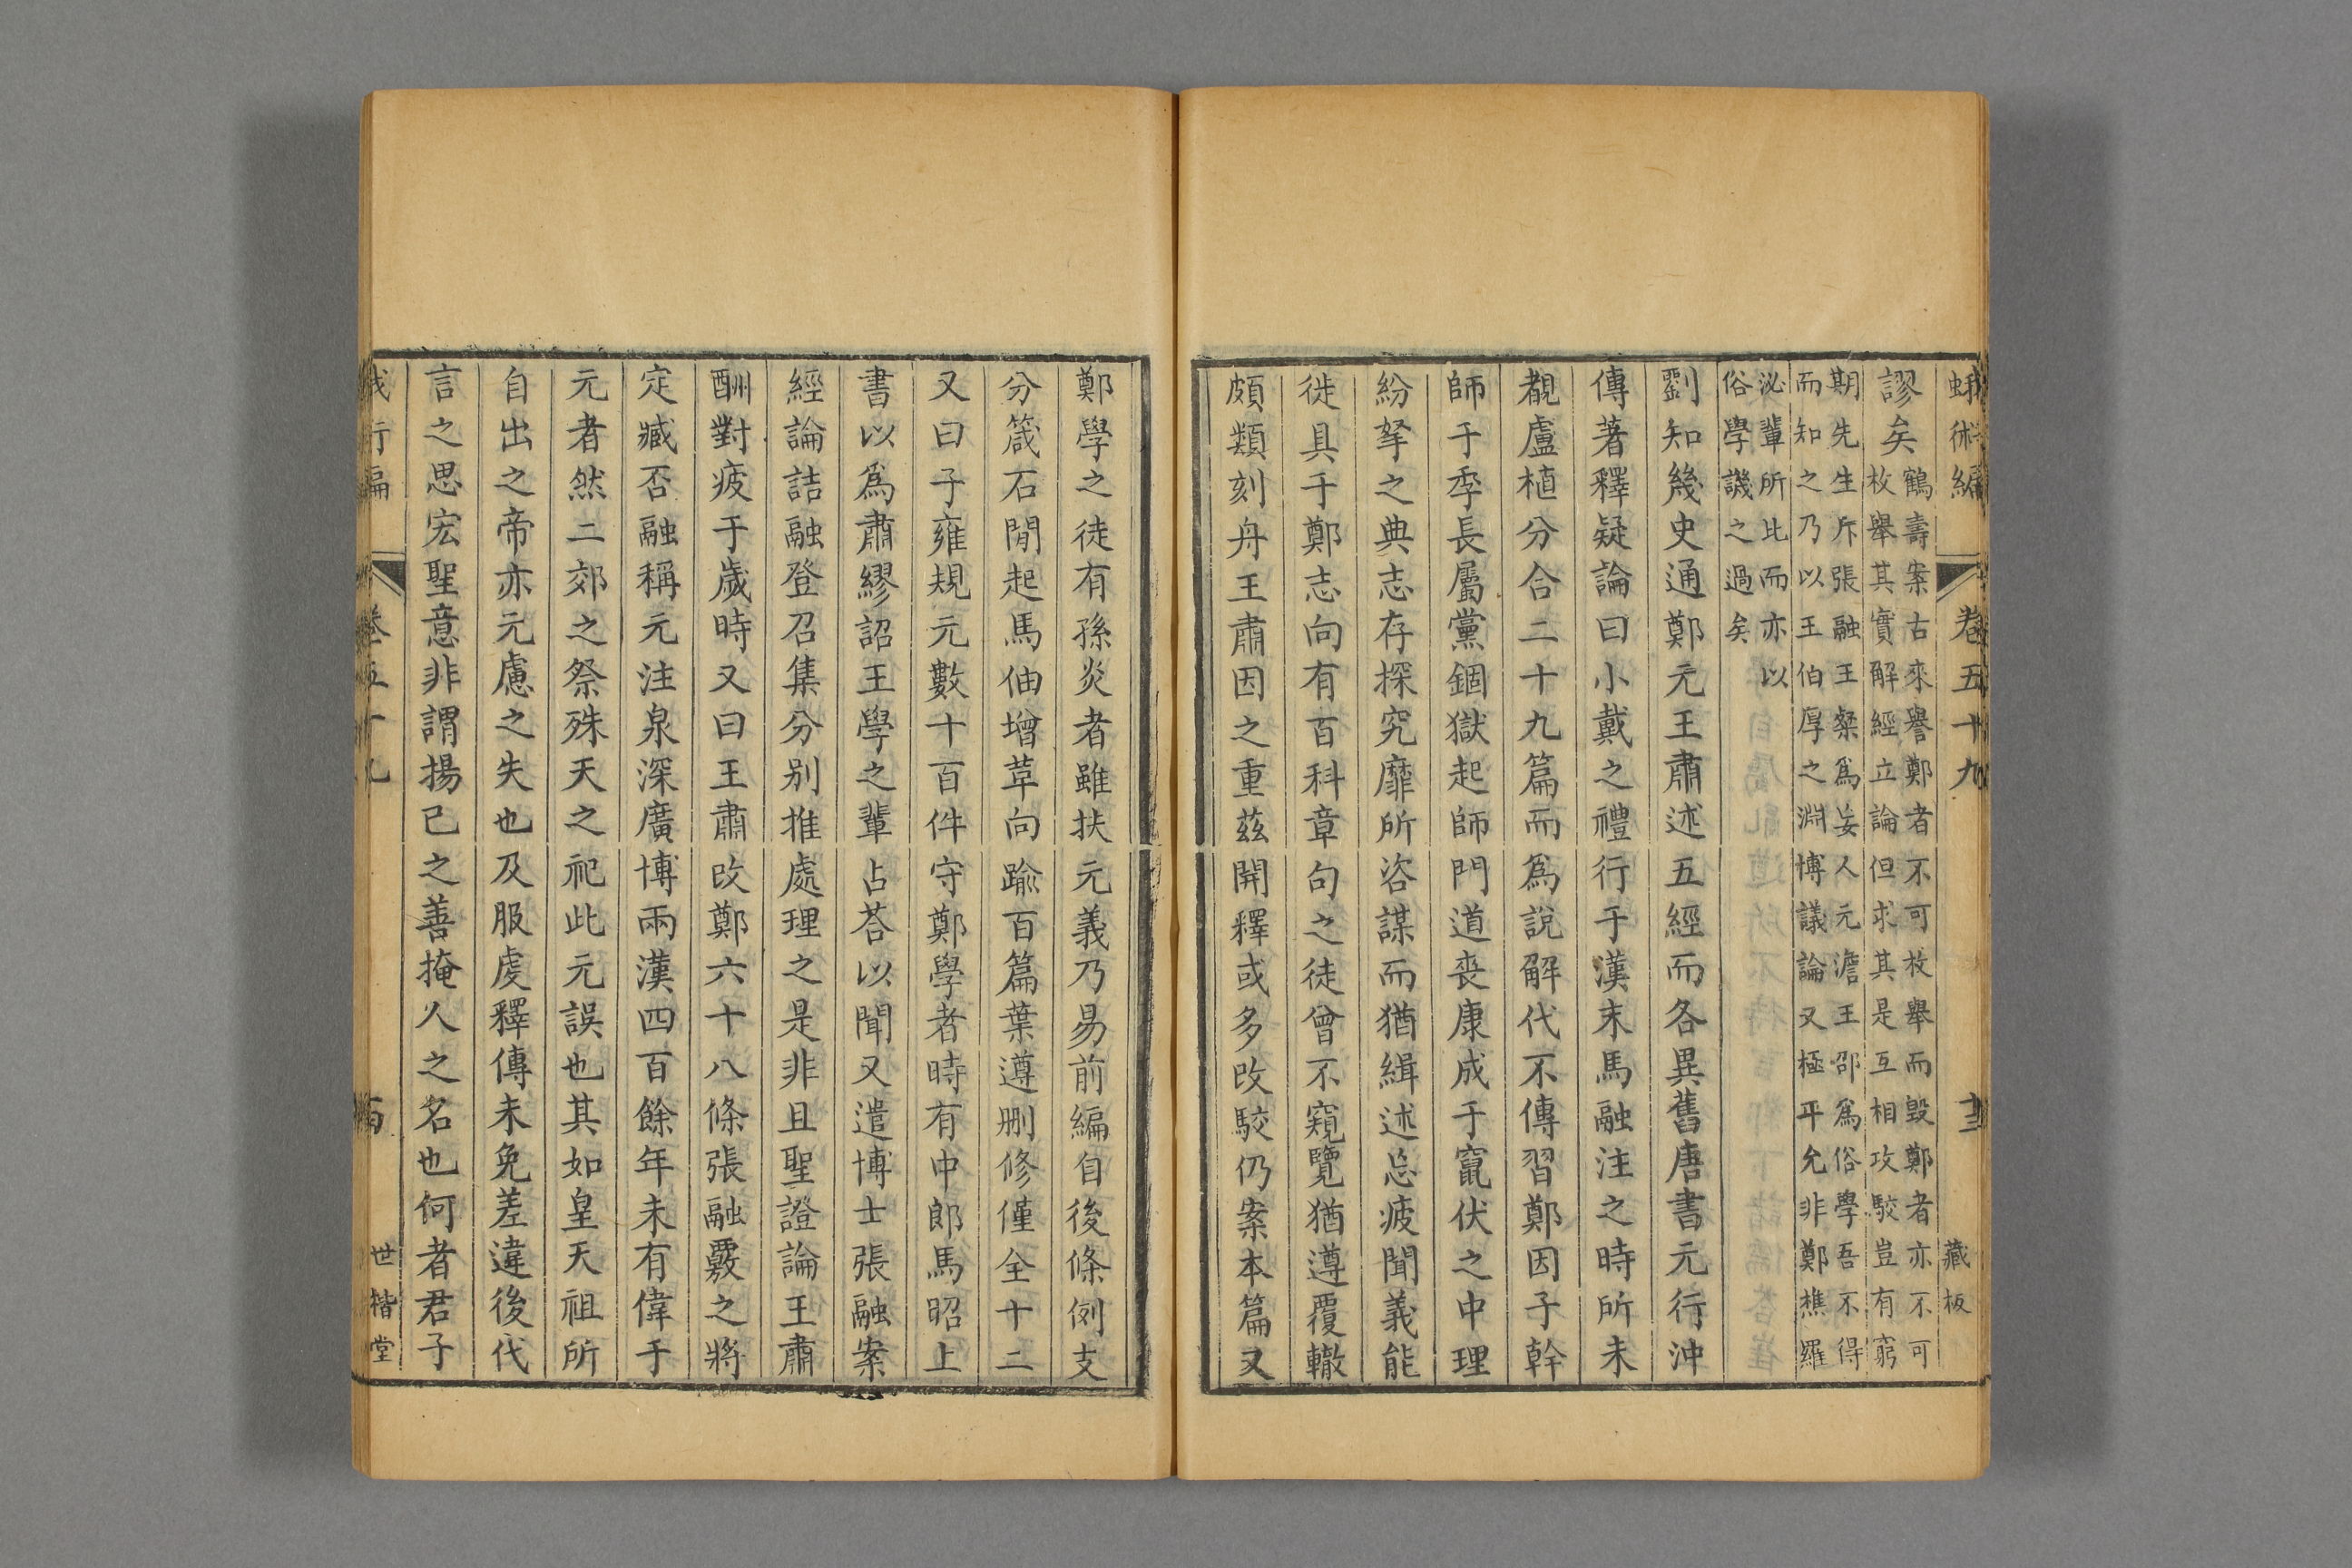 蛾術編 卷五十九 十三 藏板
謬矣鶴壽案古來譽鄭者不可枚舉而毀鄭者亦不可
枚舉其實解經立論但求其是互相攻駮豈有窮
期先生斥張融王粲爲妄人元澹王邵爲俗學吾不得
而知之乃以王伯厚之淵博議論又極平允非鄭樵羅
泌輩所比而亦以
俗學譏之過矣
劉知幾史通鄭元王肅述五經而各異舊唐書元行沖
傳著釋疑論曰小戴之禮行于漢末馬融注之時所未
覩盧植分合二十九篇而爲說解代不傳習鄭因子幹
師于季長屬黨錮獄起師門道喪康成于竄伏之中理
紛拏之典志存探究靡所咨謀而猶緝述忘疲聞義能
徙具于鄭志向有百科章句之徒曾不窺覽猶遵覆轍
頗類刻舟王肅因之重茲開釋或多改駮仍案本篇又
鄭學之徒有孫炎者雖扶元義乃易前編自後條例支
分箴石閒起馬伷增革向踰百篇葉遵删修僅全十二
又曰子雍規元數十百件守鄭學者時有中郎馬昭上
書以爲肅繆詔王學之輩占荅以聞又遣博士張融案
經論詰融登召集分别推處理之是非且聖證論王肅
酬對疲于歲時又曰王肅改鄭六十八條張融覈之將
定臧否融稱元注泉深廣博兩漢四百餘年未有偉于
元者然二郊之祭殊天之祀此元誤也其如皇天祖所
自出之帝亦元慮之失也及服虔釋傳未免差違後代
言之思宏聖意非謂揚己之善掩人之名也何者君子
卷五十九 世楷堂